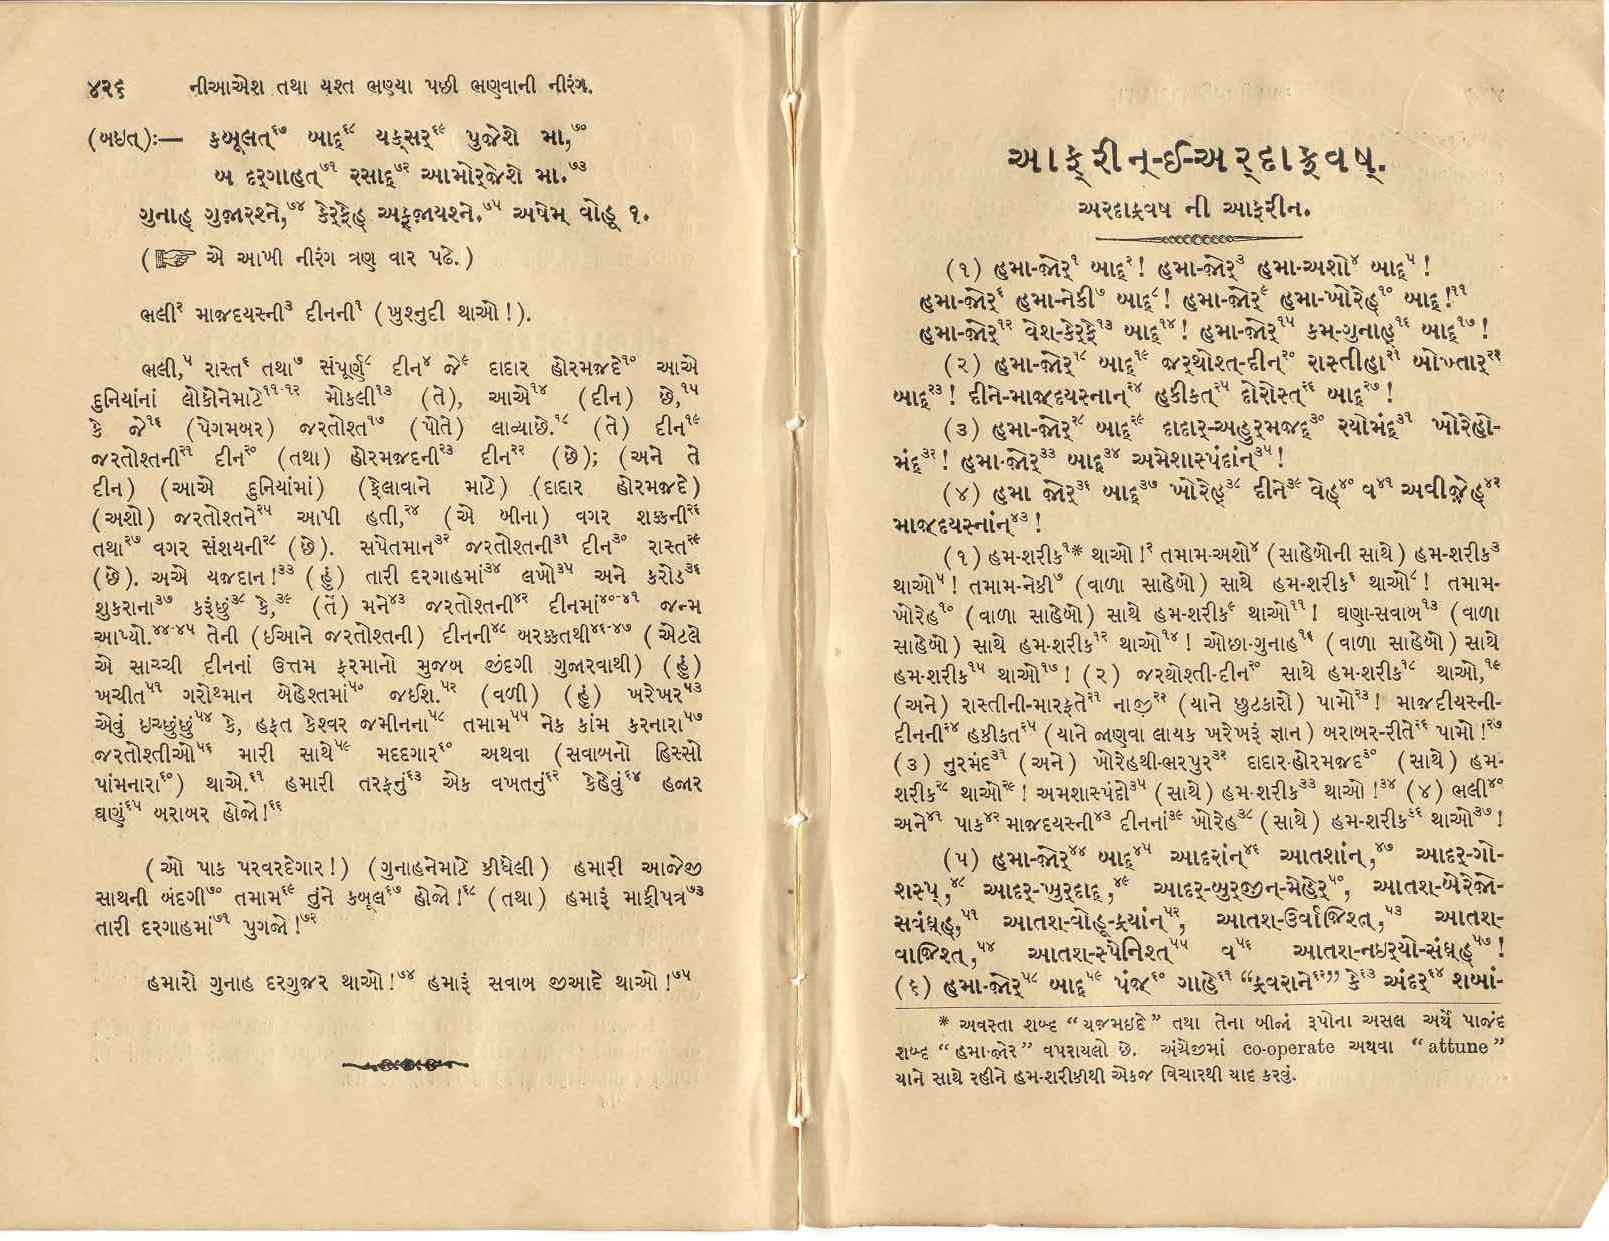 ૪૨૬ નીઆએશ તથા યશ્ત ભણ્યા પછી ભણવાની નીરંગ.
(બઇત્):— કબૂલત્૬૭ બાદ્૬૮ યક્સર્૬૯ પુજેશે મા,૭૦
બ દર્ગાહત્૭૧ રસાદ્૭૨ આમોર્જેશે મા.૭૩
ગુનાહ ગુજારશ્ને,૭૪ કેર્ફેહ અફ્જાયશ્ને.૭૫ અષેમ્ વોહૂ ૧.
(☞ એ આખી નીરંગ ત્રણ વાર પઢે.)
ભલી૨ માજદયસ્ની૩ દીનની૧ (ખુશ્નુદી થાઓ!).
ભલી,૫ રાસ્ત૬ તથા૭ સંપૂર્ણ૮ દીન૪ જે૯ દાદાર હોરમજદે૧૦ આએ
દુનિયાંનાં લોકોનેમાટે૧૧-૧૨ મોકલી૧૩ (તે), આએ૧૪ (દીન) છે,૧૫
કે જે૧૬ (પેગમબર) જરતોશ્ત૧૭ (પોતે) લાવ્યાછે.૧૮ (તે) દીન૧૯
જરતોશ્તની૨૧ દીન૨૦ (તથા) હોરમજદની૨૩ દીન૨૨ (છે); (અને તે
દીન) (આએ દુનિયાંમાં) (ફેલાવાને માટે) (દાદાર હોરમજદે)
(અશો) જરતોશ્તને૨૫ આપી હતી,૨૪ (એ બીના) વગર શક્કની૨૬
તથા૨૭ વગર સંશયની૨૮ (છે). સપેતમાન૩૨ જરતોશ્તની૩૧ દીન૩૦ રાસ્ત૨૯
(છે). અએ યજદાન!૩૩ (હું) તારી દરગાહમાં૩૪ લખો૩૫ અને કરોડ૩૬
શુકરાના૩૭ કરૂંછું૩૮ કે,૩૯ (તેં) મને૪૩ જરતોશ્તની૪૨ દીનમાં૪૦-૪૧ જન્મ
આપ્યો.૪૪-૪૫ તેની (ઈઆને જરતોશ્તની) દીનની૪૮ બરક્કતથી૪૬-૪૭ (એટલે
એ સાચ્ચી દીનનાં ઉત્તમ ફરમાનો મુજબ જીંદગી ગુજારવાથી) (હું)
ખચીત૫૧ ગરોથ્માન બેહેશ્તમાં૫૦ જઈશ.૫૨ (વળી) (હું) ખરેખર૫૩
એવું ઇચ્છુંછું૫૪ કે, હફ્ત કેશ્વર જમીનના૫૮ તમામ૫૫ નેક કાંમ કરનારા૫૭
જરતોશ્તીઓ૫૬ મારી સાથે૫૯ મદદગાર૬૦ અથવા (સવાબનો હિસ્સો
પાંમનારા૬૦) થાએ.૬૧ હમારી તરફનું૬૩ એક વખતનું૬૨ કેહેવું૬૪ હજાર
ઘણું૬૫ બરાબર હોજો!૬૬
(ઓ પાક પરવરદેગાર!) (ગુનાહનેમાટે કીધેલી) હમારી આજેજી
સાથની બંદગી૭૦ તમામ૬૯ તુંને કબૂલ૬૭ હોજો!૬૮ (તથા) હમારૂં માફીપત્ર૭૩
તારી દરગાહમાં૭૧ પુગજો!૭૨
હમારો ગુનાહ દરગુજર થાઓ!૭૪ હમારૂં સવાબ જીઆદે થાઓ!૭૫
આફ્રીન્-ઈ-અર્દાફ્રવષ્.
અરદાફ્રવષ ની આફરીન.
(૧) હમા-જોર્૧ બાદ્૨! હમા-જોર્૩ હમા-અશો૪ બાદ્૫!
હમા-જોર્૬ હમા-નેકી૭ બાદ્૮! હમા-જોર્૯ હમા-ખોરેહ્૧૦ બાદ્!૧૧
હમા-જોર્૧૨ વેશ-કેર્ફે૧૩ બાદ્૧૪! હમા-જોર્૧૫ કમ-ગુનાહ્૧૬ બાદ્૧૭!
(૨) હમા-જોર્૧૮ બાદ્૧૯ જર્થોશ્ત-દીન્૨૦ રાસ્તીહા૨૧ બોખ્તાર્૨૨
બાદ્૨૩! દીને-માજદયસ્નાન્૨૪ હકીકત્૨૫ દોરોસ્ત્૨૬ બાદ્૨૭!
(૩) હમા-જોર્૨૮ બાદ્૨૯ દાદાર્-અહુર્મજદ્૩૦ રયોમંદ્૩૧ ખોરેહો-
મંદ્૩૨! હમા-જોર્૩૩ બાદ્૩૪ અમેશાસ્પંદાંન્૩૫!
(૪) હમા જોર્૩૬ બાદ્૩૭ ખોરેહ્૩૮ દીને૩૯ વેહ્૪૦ વ૪૧ અવીજેહ્૪૨
માજદયસ્નાંન્૪૩!
(૧) હમ-શરીક૧* થાઓ!૨ તમામ-અશો૪ (સાહેબોની સાથે) હમ-શરીક૩
થાઓ૫! તમામ-નેકી૭ (વાળા સાહેબો) સાથે હમ-શરીક૬ થાઓ૮! તમામ-
ખોરેહ૧૦ (વાળા સાહેબો) સાથે હમ-શરીક૯ થાઓ૧૧! ઘણા-સવાબ૧૩ (વાળા
સાહેબો) સાથે હમ-શરીક૧૨ થાઓ૧૪! ઓછા-ગુનાહ૧૬ (વાળા સાહેબો) સાથે
હમ-શરીક૧૫ થાઓ૧૭! (૨) જરથોશ્તી-દીન૨૦ સાથે હમ-શરીક૧૮ થાઓ,૧૯
(અને) રાસ્તીની-મારફતે૨૧ નાજી૨૨ (યાને છુટકારો) પામો૨૩! માજદીયસ્ની-
દીનની૨૪ હકીકત૨૫ (યાને જાણવા લાયક ખરેખરૂં જ્ઞાન) બરાબર-રીતે૨૬ પામો!૨૭
(૩) નુરમંદ૩૧ (અને) ખોરેહથી-ભરપુર૩૨ દાદાર-હોરમજદ૩૦ (સાથે) હમ-
શરીક૨૮ થાઓ૨૯! અમશાસ્પંદો૩૫ (સાથે) હમ-શરીક૩૩ થાઓ!૩૪ (૪) ભલી૪૦
અને૪૧ પાક૪૨ માજદયસ્ની૪૩ દીનનાં૩૯ ખોરેહ૩૮ (સાથે) હમ-શરીક૩૬ થાઓ૩૭!
(૫) હમા-જોર્૪૪ બાદ્૪૫ આદરાંન્૪૬ આતશાંન્,૪૭ આદર્-ગો-
શસ્પ્,૪૮ આદર્-ખુર્દાદ્,૪૯ આદર્-બુર્જીન-મેહેર્૫૦, આતશ-બેરેજો-
સવંઘ્હ,૫૧ આતશ-વોહૂ-ફ્રયાંન્૫૨, આતશ-ઉર્વાજિશ્ત્,૫૩ આતશ-
વાજિશ્ત્,૫૪ આતશ-સ્પેનિશ્ત્૫૫ વ૫૬ આતશ-નઇર્યો-સંઘ્હ૫૭!
(૬) હમા-જોર્૫૮ બાદ્૫૯ પંજ૬૦ ગાહે૬૧ “ફ્રવરાને૬૨” કે૬૩ અંદર્૬૪ શબાં-
* અવસ્તા શબ્દ “યજમઇદે” તથા તેના બીજાં રૂપોના અસલ અર્થે પાજંદ
શબ્દ “હમા-જોર” વપરાયલો છે. અંગ્રેજીમાં co-operate અથવા “attune”
યાને સાથે રહીને હમ-શરીકીથી એકજ વિચારથી યાદ કરવું.